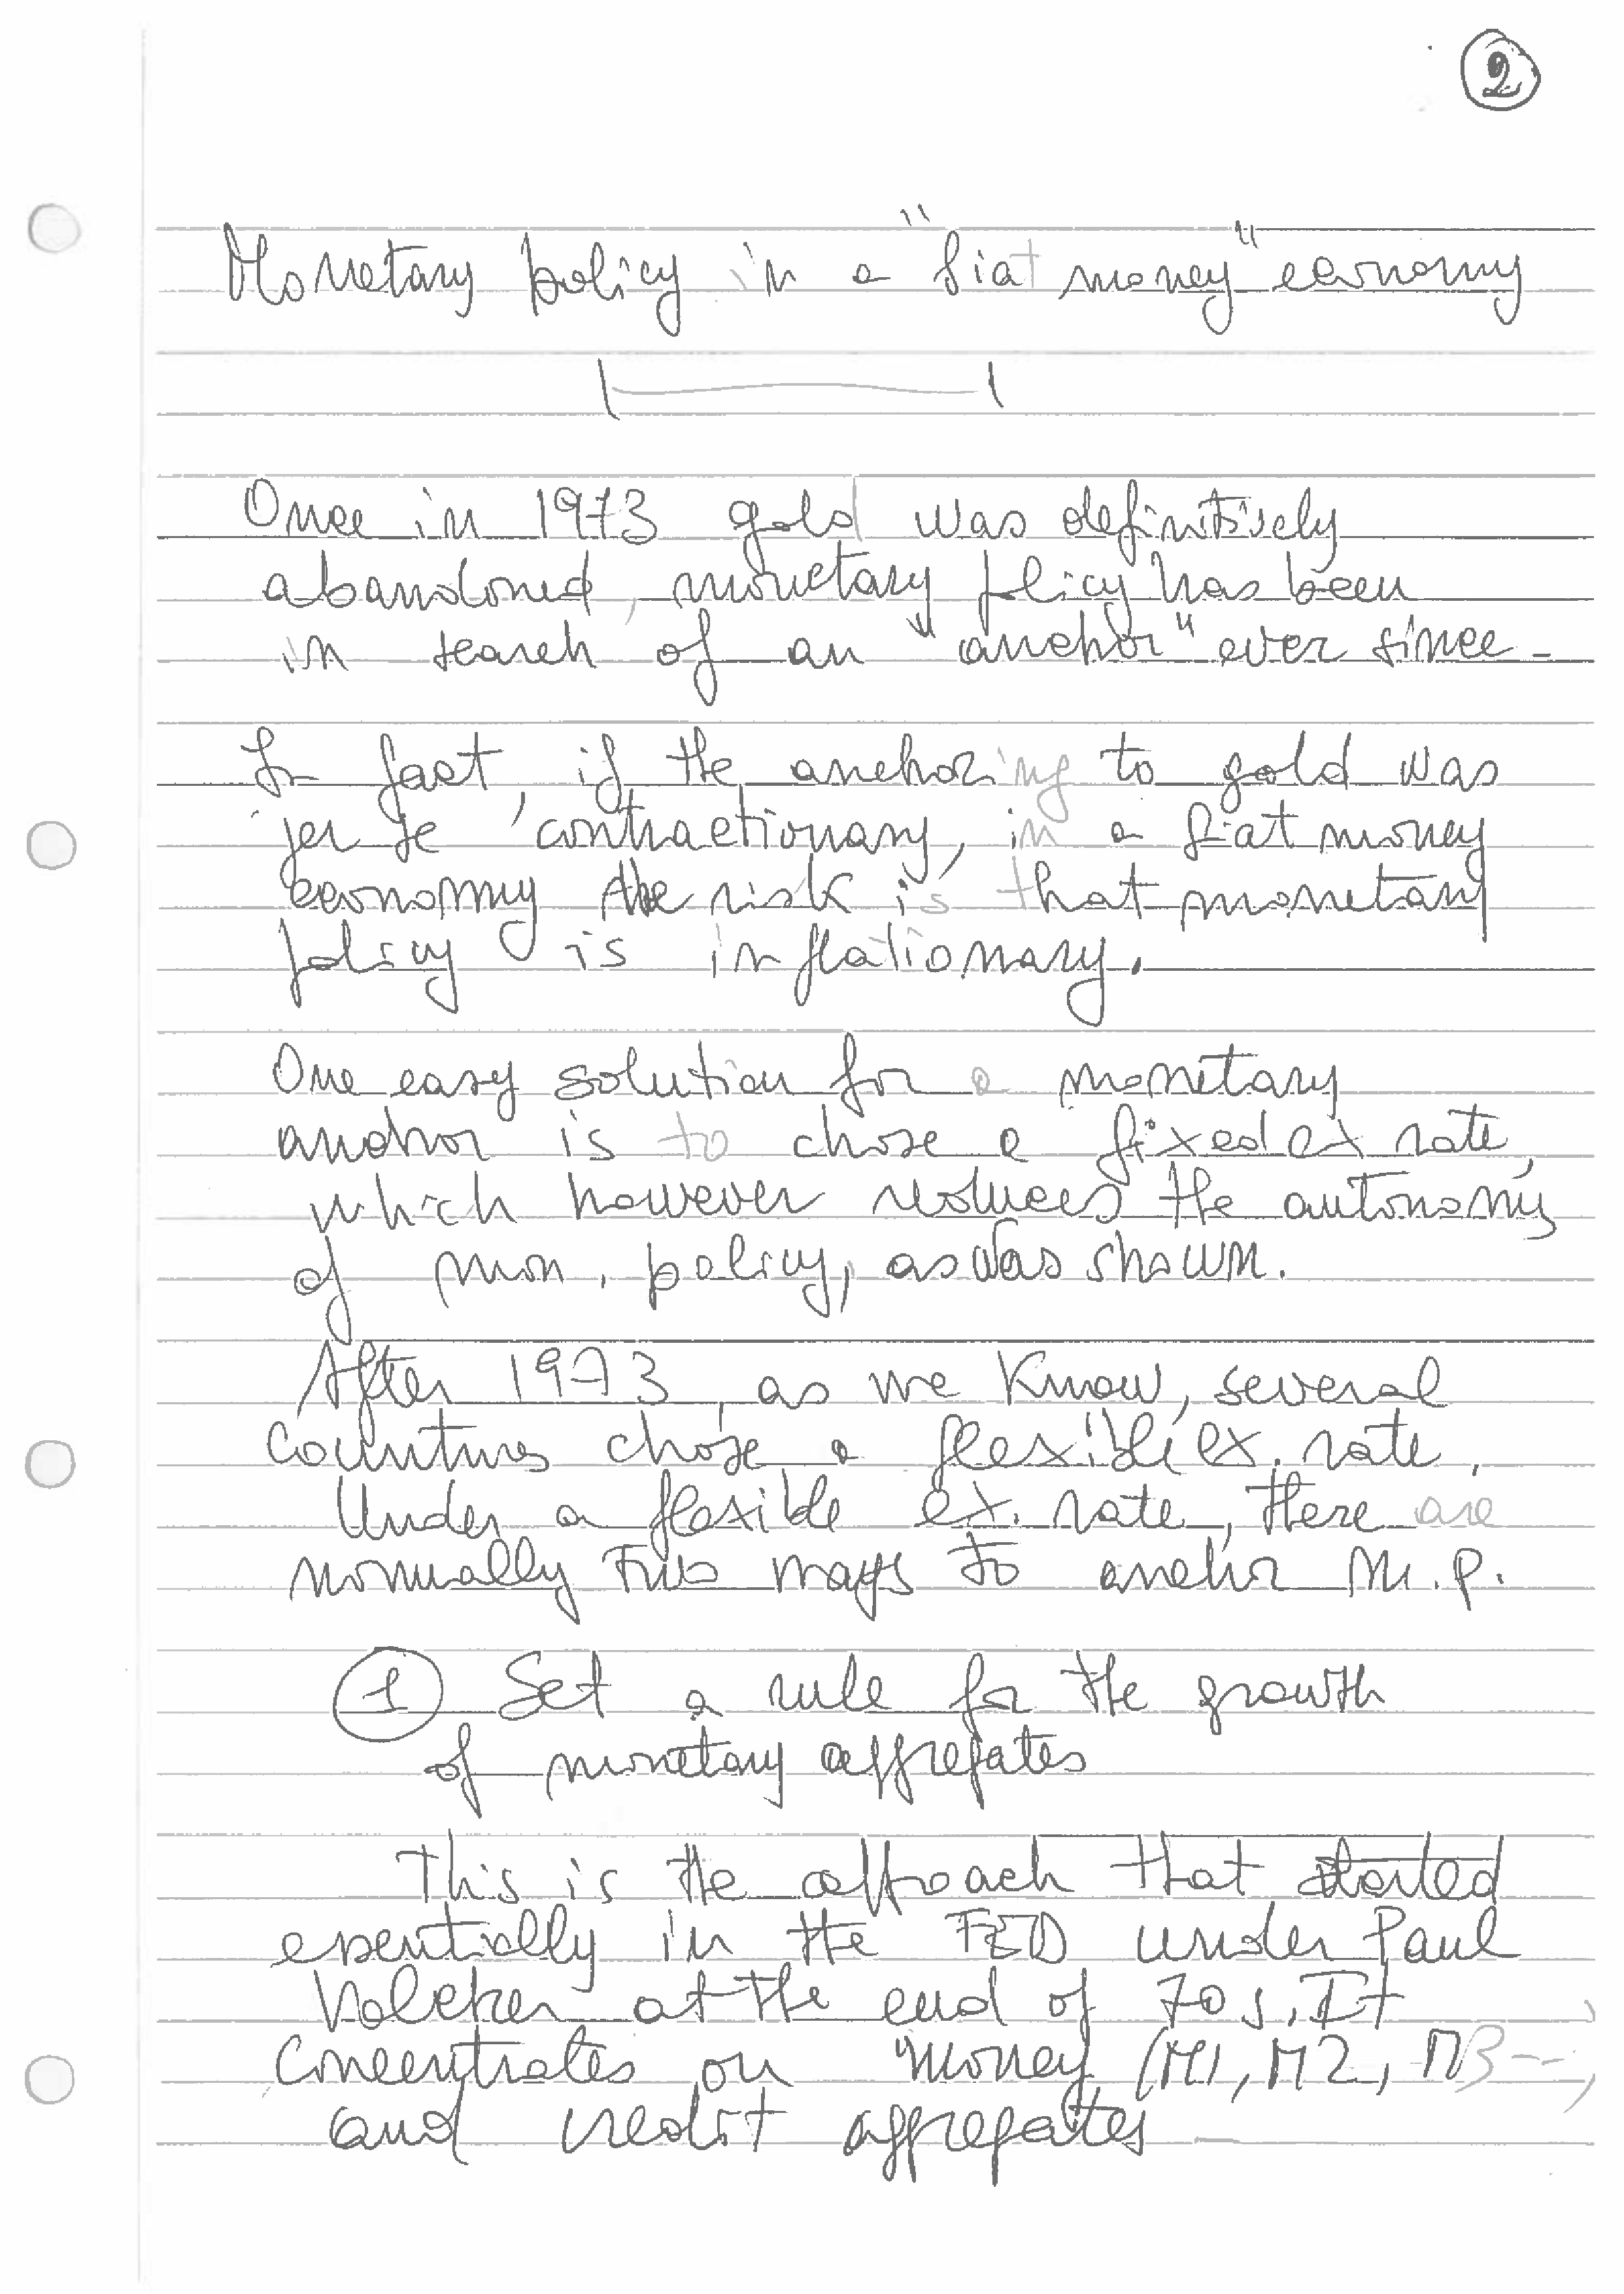 2
Monetary policy in a "fiat money" economy
Once in 1973 gold was definitively
abandoned, monetary policy has been
in search of an "anchor" ever since -
In fact, if the anchoring to gold was
per se contractionary, in a fiat money
economy the risk is that monetary
policy is inflationary.
One easy solution for a monetary
anchor is to chose a fixed ex rate,
which however reduces the autonomy
of mon. policy, as was shown.
After 1973, as we know, several
countries chose a flexible ex. rate.
Under a flexible ex. rate, there are
normally two ways to anchor M.P.
1 Set a rule for the growth
of monetary aggregates
This is the approach that started
essentially in the FED under Paul
Volcker at the end of 70s. It
concentrates on "money (M1, M2, M3--)
and credit aggregates -